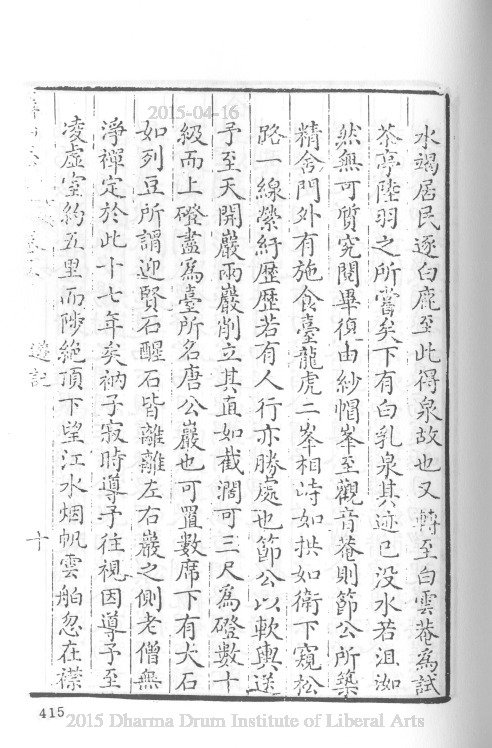 水竭居民逐白鹿至此得泉故也又轉至白雲菴爲試
茶亭陸羽之所嘗矣下有白乳泉其迹已没水若沮洳
然無可質究閱畢復由紗帽峯至觀音菴則節公所築
精舍門外有施食臺龍虎二峯相峙如拱如衛下窺松
路一線縈紆歷歷若有人行亦勝處也節公以軟輿送
予至天開巖兩巖削立其直如截濶可三尺爲磴數十
級而上磴盡爲臺所名唐公巖也可置數席下有犬石
如列豆所謂迎賢石醒石皆離離左右巖之側老僧無
淨禪定於此十七年矣衲子寂時導予往視因導予至
凌虛室約五里而陟絶頂下望江水烟帆雲舶忽在襟
遊記
十
415
2015-04-16
2015 Dharma Drum Institute of Liberal Arts